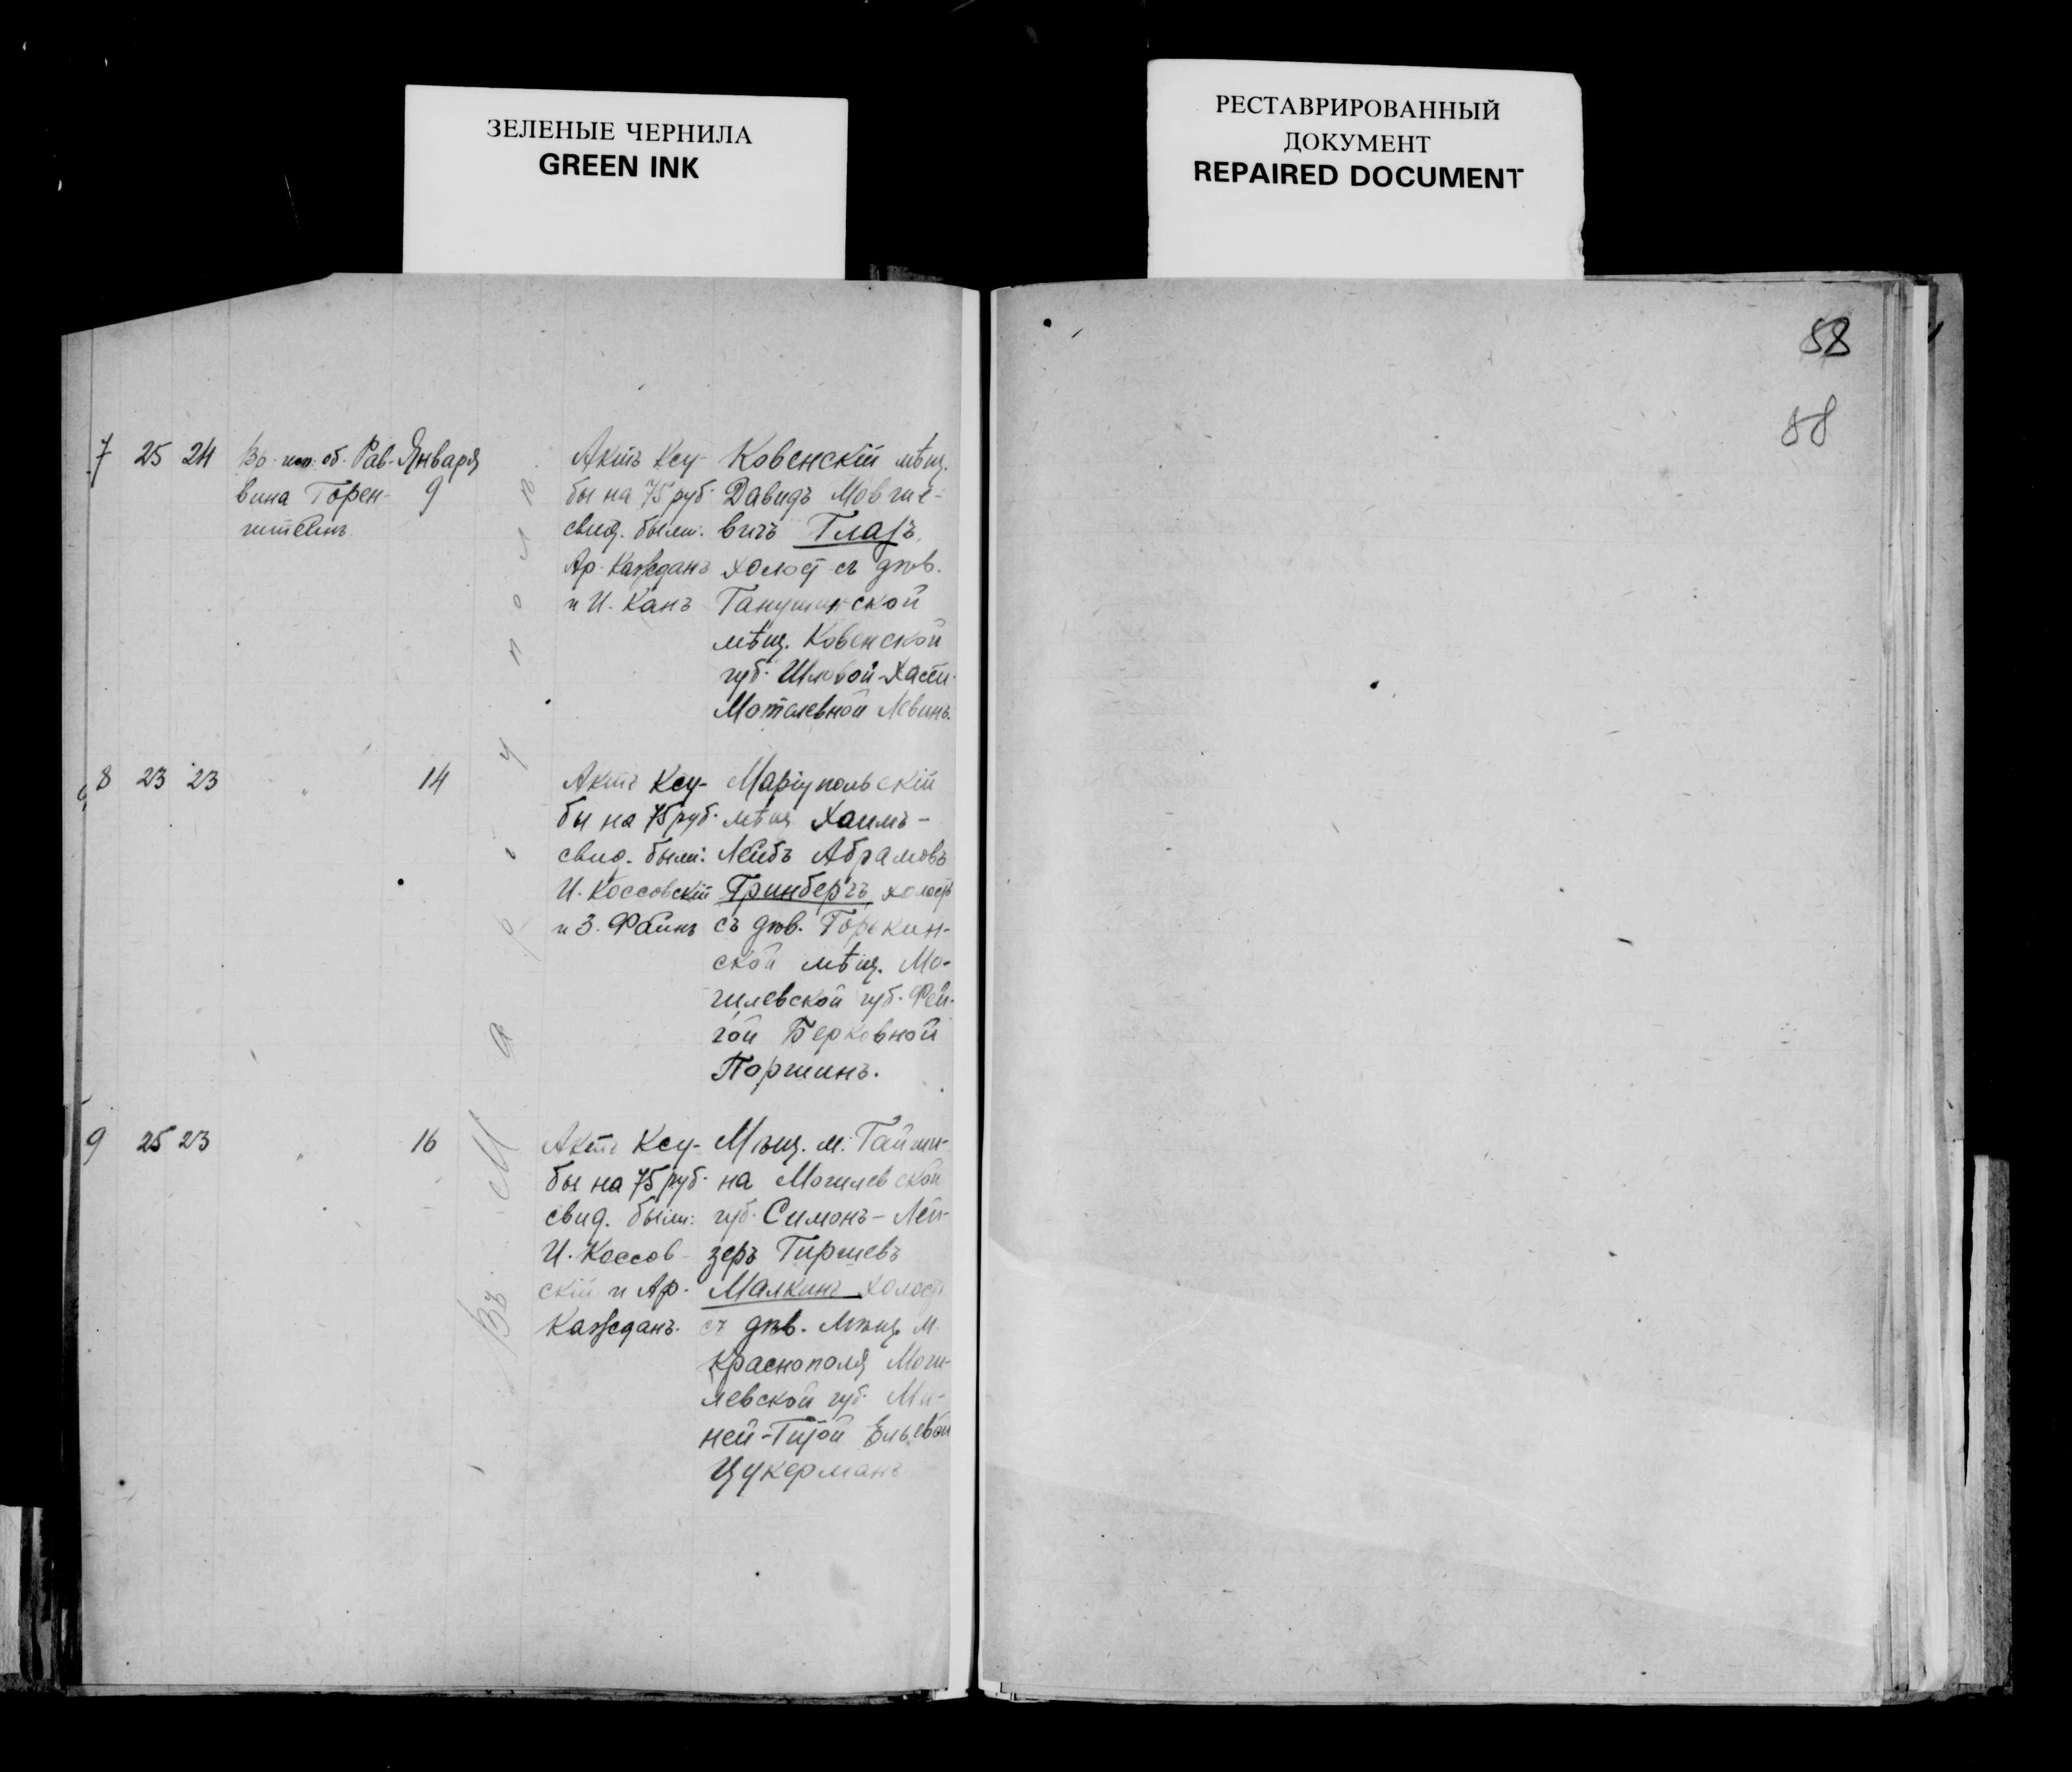 ЗЕЛЕНЫЕ ЧЕРНИЛА
GREEN INK
РЕСТАВРИРОВАННЫЙ
ДОКУМЕНТ
REPAIRED DOCUMENT
88
7 25 24 Во исп. об. Рав-
вина Горен-
штейнъ
Января
9
Актъ Ксу-
бы на 75 руб.
свид. были:
Ар. Кажданъ
и И. Канъ
Ковенскій мѣщ.
Давидъ Мовше-
вичъ Глазъ,
холост съ дѣв.
Ганушинской
мѣщ. Ковенской
губ. Шловой-Хасей
Мотелевной Левинъ.
8 23 23 " 14
Актъ Ксу-
бы на 75 руб.
свид. были:
И. Коссовскій
и З. Файнъ
Маріупольскій
мѣщ. Хаимъ-
Лейбъ Абрамовъ
Гринбергъ холостъ
съ дѣв. Горекин-
ской мѣщ. Мо-
гилевской губ. Фей-
гой Берковной
Поршинъ.
9 25 23 " 16
Актъ Ксу-
бы на 75 руб.
свид. были:
И. Коссов-
скій и Ар.
Кажданъ.
Мѣщ. м. Гайши-
на Могилевской
губ. Симонъ-Лей-
зеръ Гиршевъ
Малкинъ холостъ
съ дѣв. Мѣщ. м.
Краснополя Моги-
левской губ. Ми-
ней-Гитой Ельевой
Цукерманъ
Въ Маріуполѣ